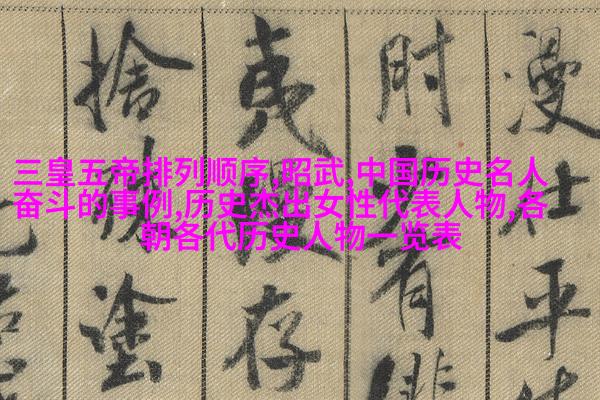 三皇五帝排列顺序,昭武,中国历史名人
奋斗的事例,历史杰出女性代表人物,各
朝各代历史人物一览表
漫仕平
时有
夷存
捨塗